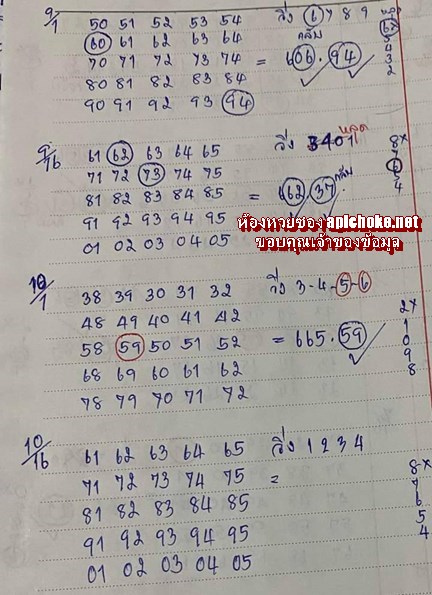 9/1 50 51 52 53 54 วิ่ง 6 7 8 9
60 61 62 63 64 กลับ 6x
70 71 72 73 74 = 606. 94 5
80 81 82 83 84 4
90 91 92 93 94 3
2
9/16 61 62 63 64 65 วิ่ง 3401 หลุด 8x
71 72 73 74 75 กลับ 7
81 82 83 84 85 = 662. 37 6
91 92 93 94 95 4
01 02 03 04 05
ห้องหวยซอง apichoke.net
ขอบคุณเจ้าของข้อมูล
10/1 38 39 30 31 32 วิ่ง 3-4-5-6
48 49 40 41 42 2x
58 59 50 51 52 = 665. 59 1
68 69 60 61 62 0
78 79 70 71 72 9
8
10/16 61 62 63 64 65 วิ่ง 1 2 3 4
71 72 73 74 75 = 8x
81 82 83 84 85 7
91 92 93 94 95 6
01 02 03 04 05 5
4